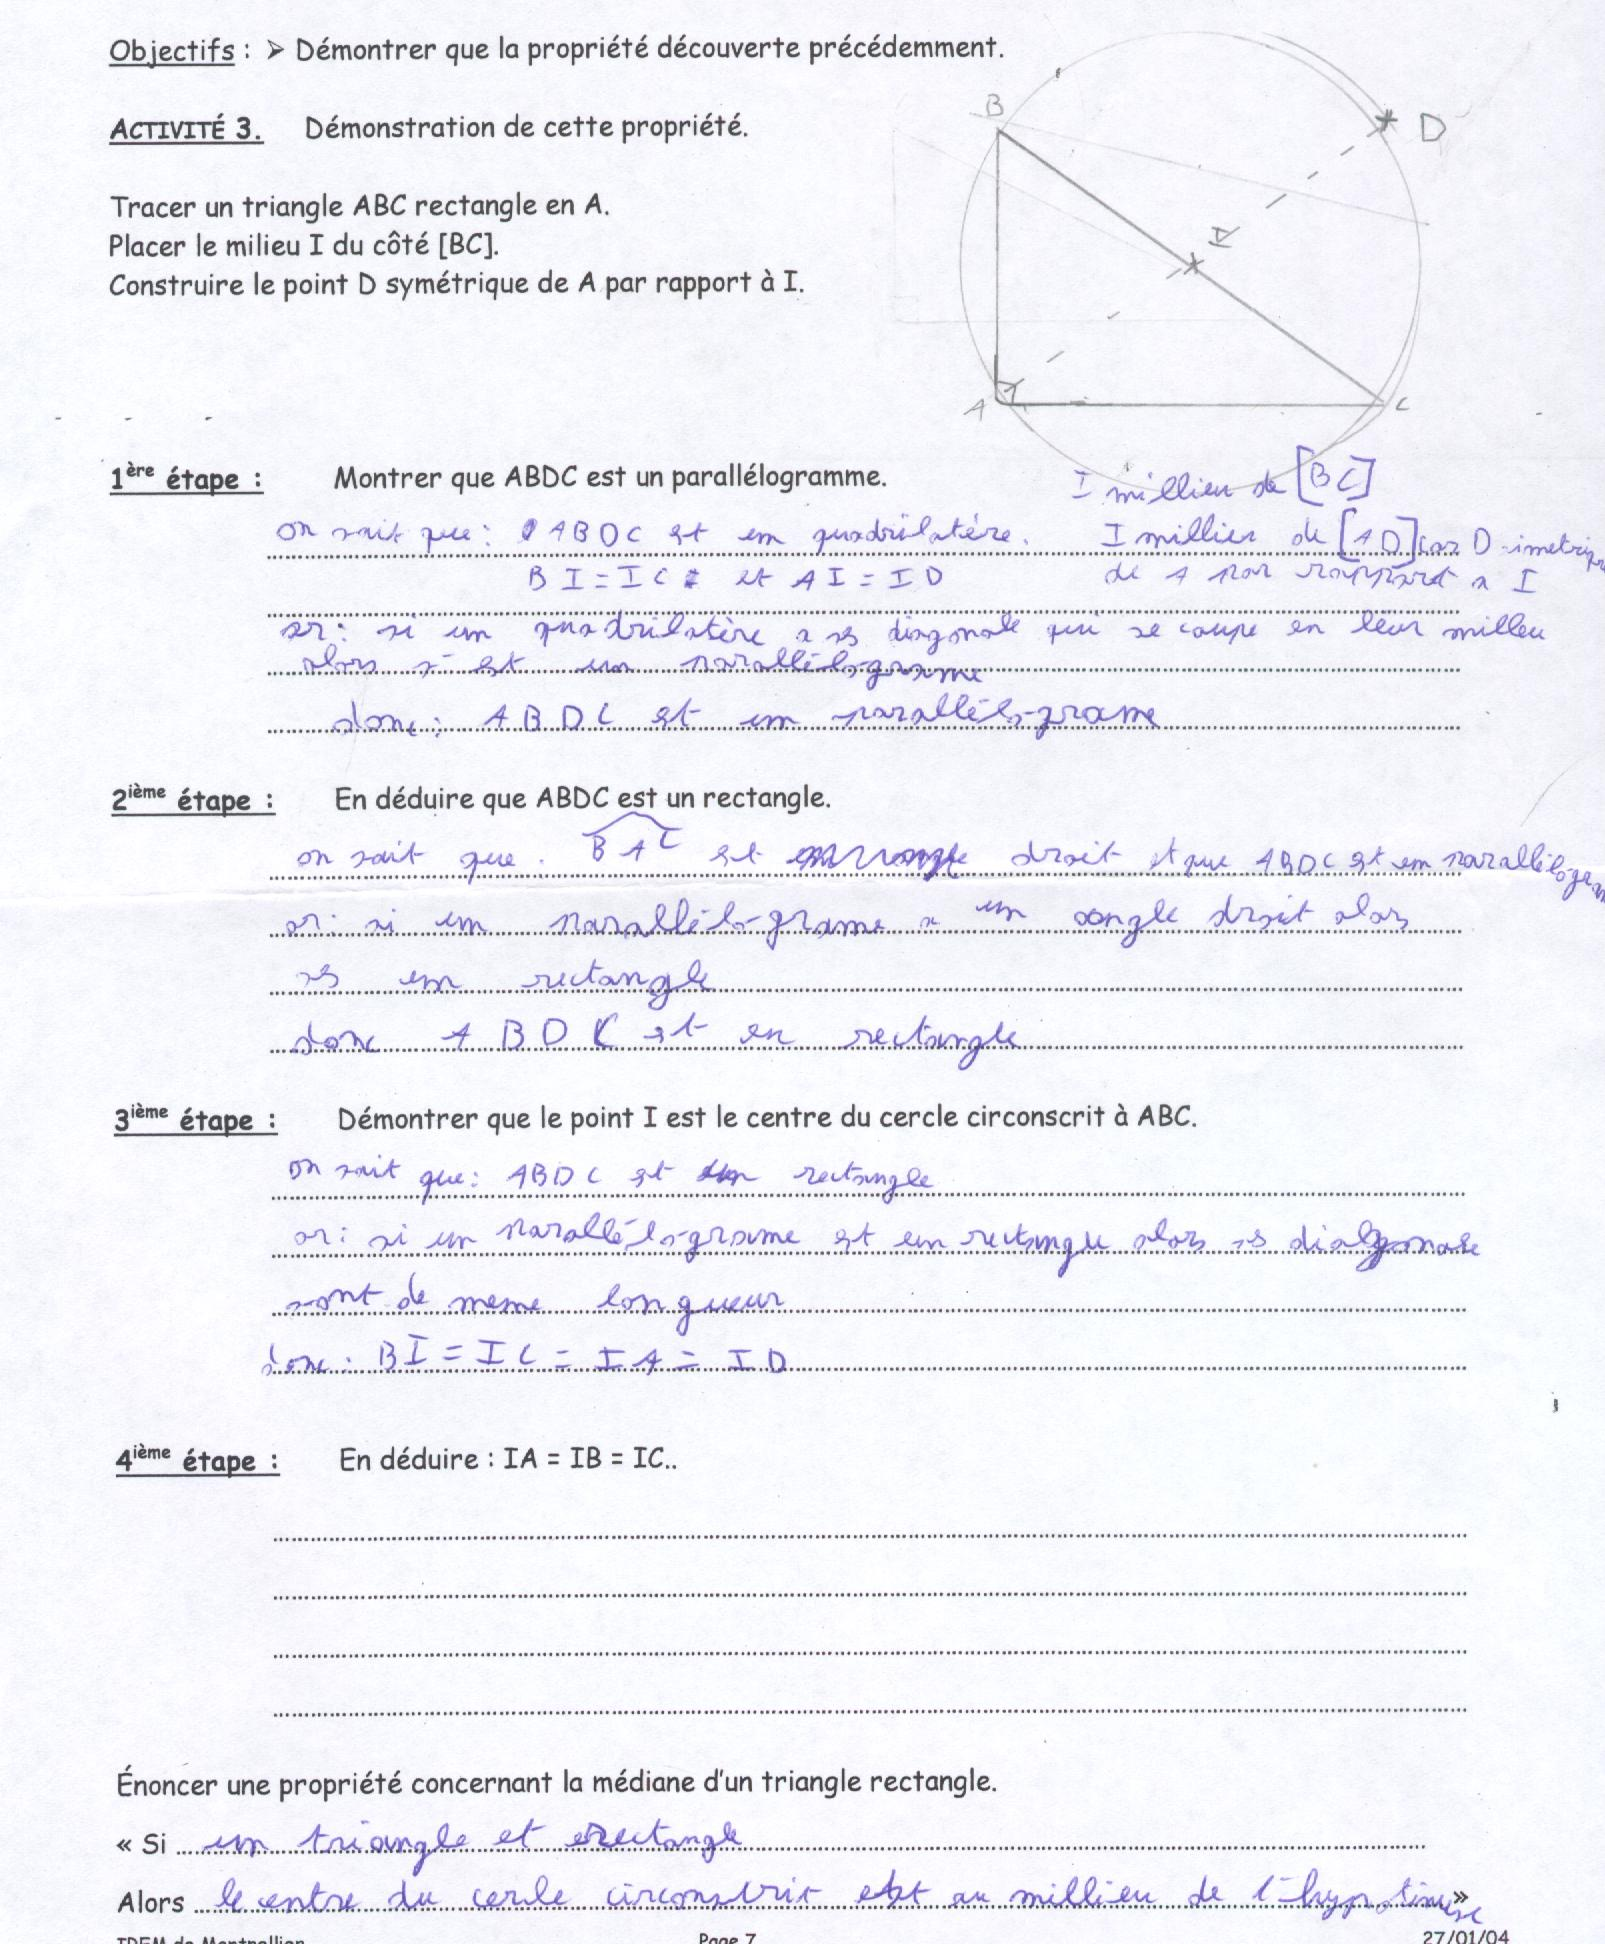 Objectifs : ➢ Démontrer que la propriété découverte précédemment.
ACTIVITÉ 3. Démonstration de cette propriété.
B
D
Tracer un triangle ABC rectangle en A.
Placer le milieu I du côté [BC].
I
Construire le point D symétrique de A par rapport à I.
A
C
1ère étape : Montrer que ABDC est un parallélogramme.
I millieu de [BC]
on sait que : ABDC est un quadrilatére. I millieu de [AD] car D
BI = IC et AI = ID de A par rapport a I
or : si un quadrilatère a ses diagonale qui se coupe en leur millieu
alors s' est un parallélo-grame
donc : ABDC est un parallélo-grame
2ième étape : En déduire que ABDC est un rectangle.
on sait que : BAC est droit et que ABDC est un
or : si un parallélo-grame a un angle droit alors
un rectangle
donc ABDC est en rectangle
3ième étape : Démontrer que le point I est le centre du cercle circonscrit à ABC.
on sait que : ABDC est un rectangle
or : si un parallélo-grame est un rectangle alors ses diagonale
sont de meme longueur
donc : BI = IC = IA = ID
4ième étape : En déduire : IA = IB = IC..
Énoncer une propriété concernant la médiane d'un triangle rectangle.
« Si un triangle et rectangle
Alors le centre du cercle est au millieu de »
Page 7
27/01/04